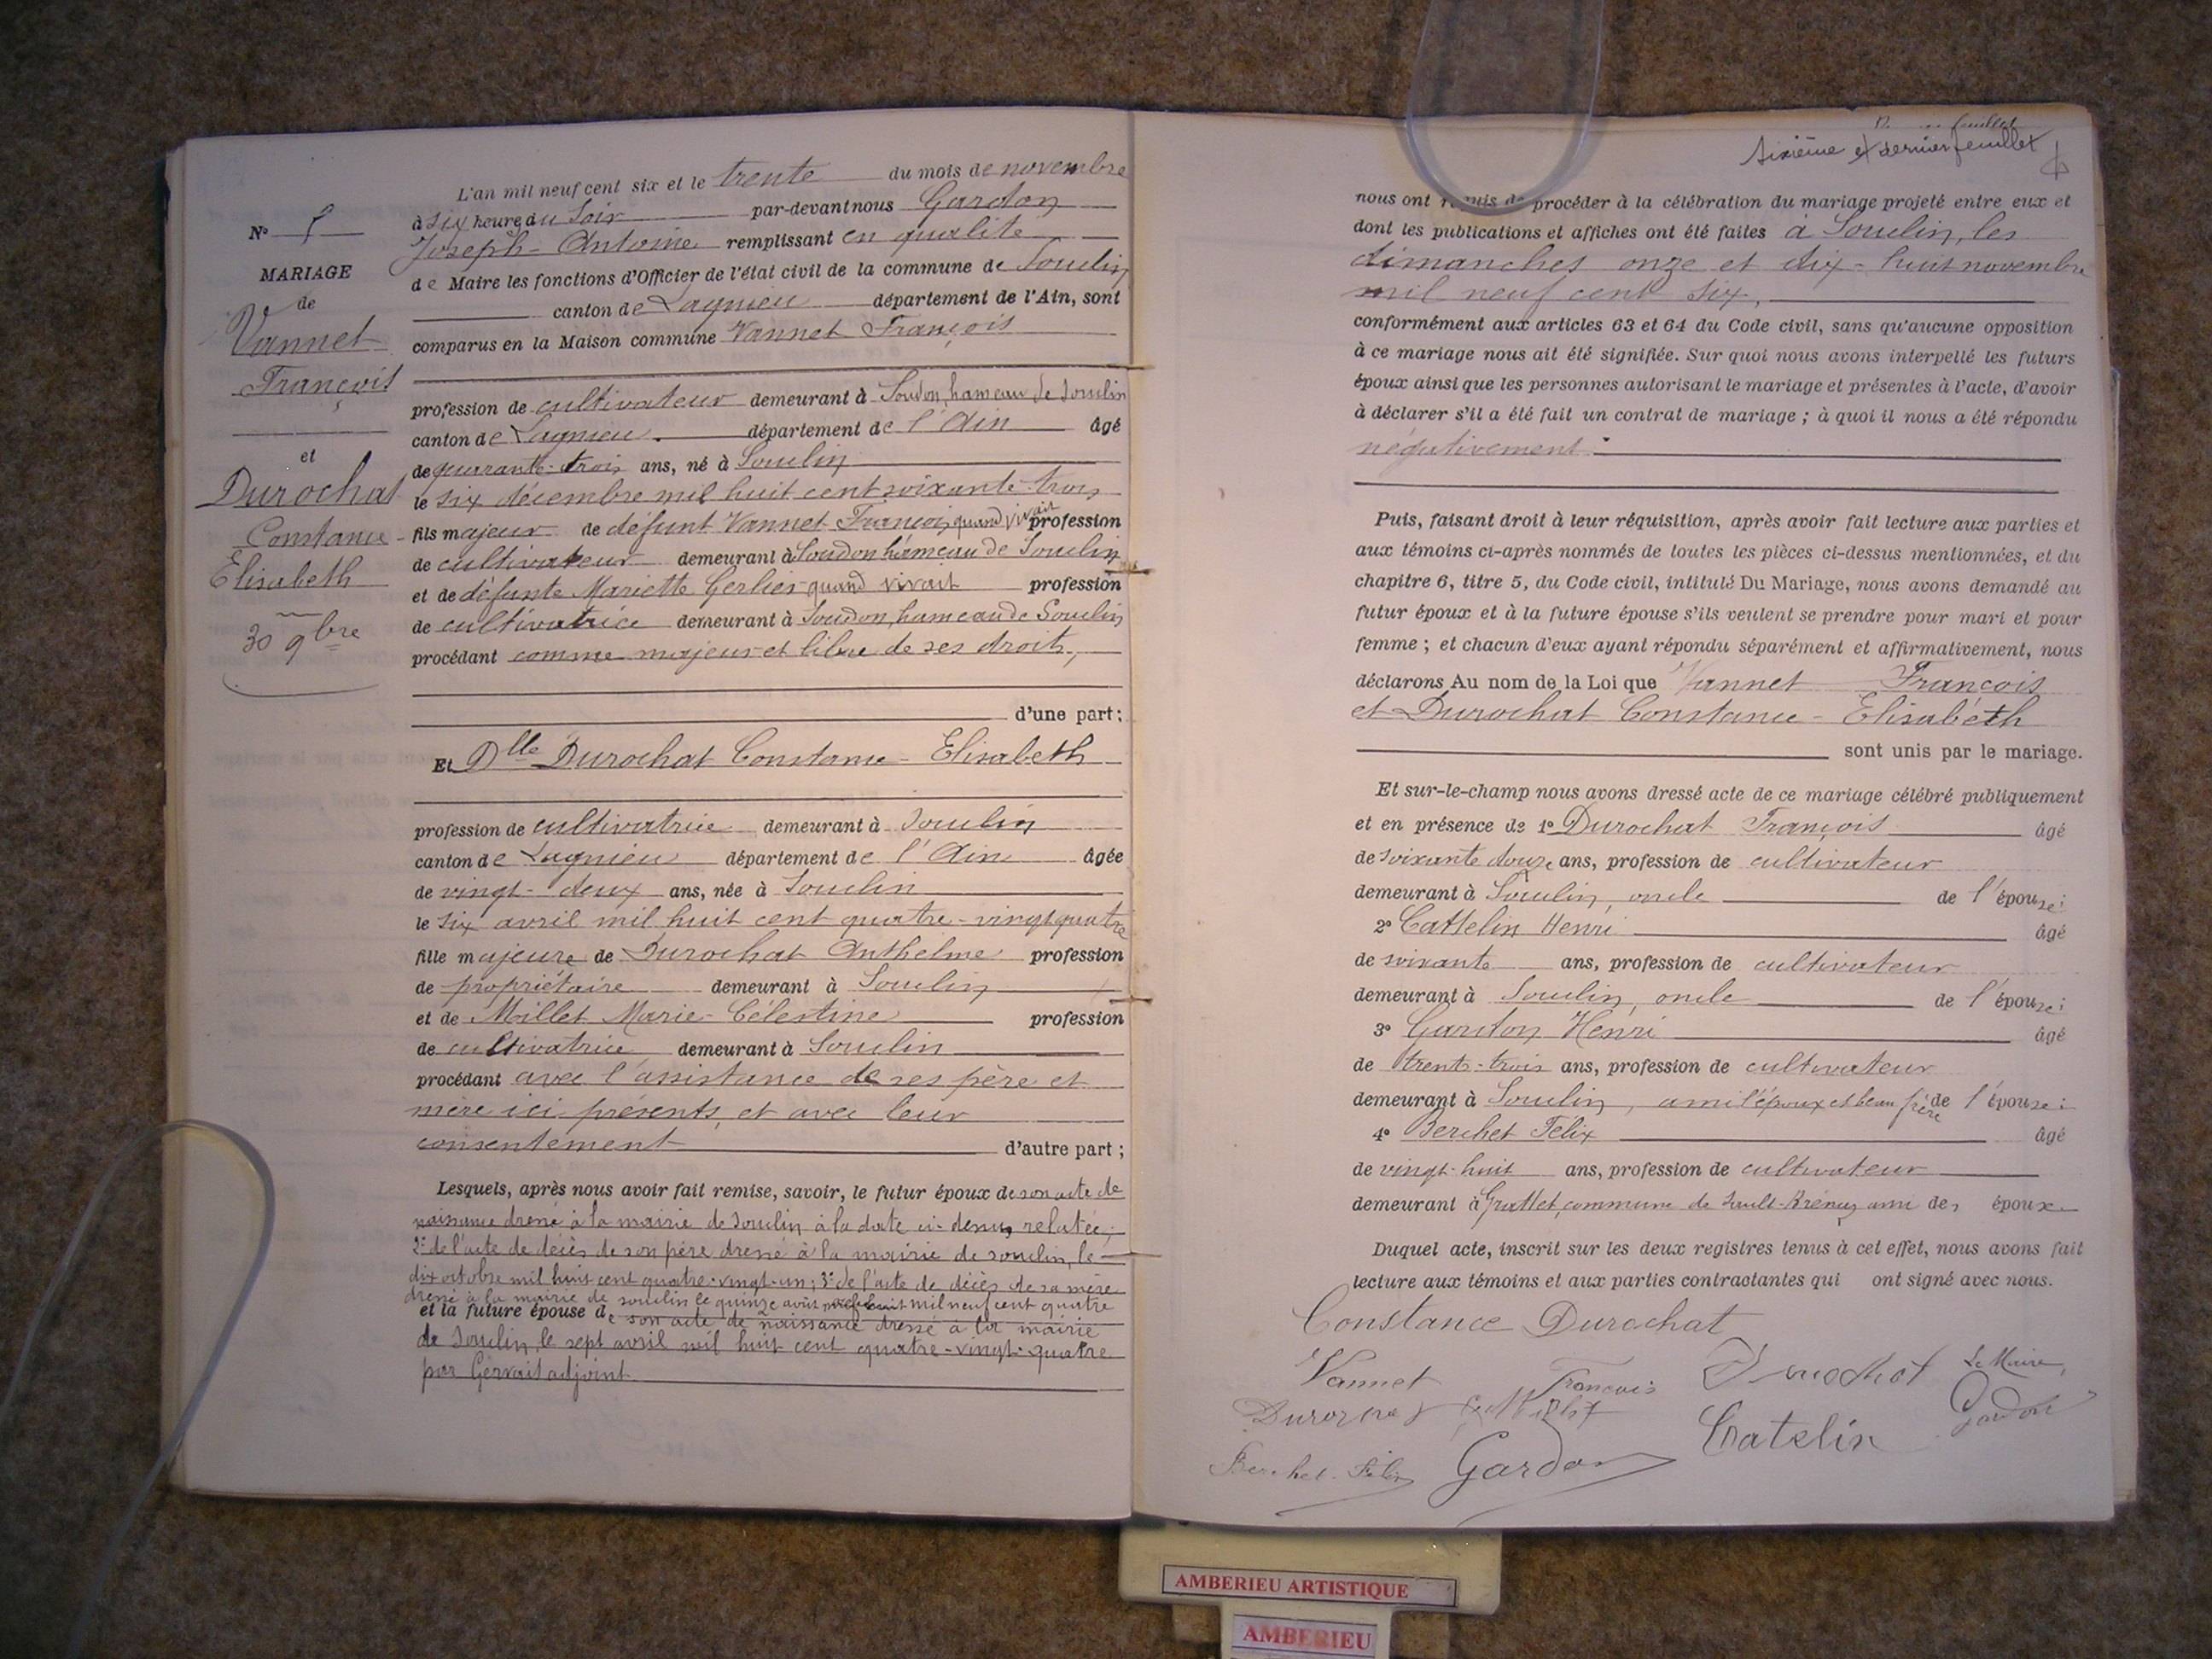 L'an mil neuf cent six et le trente du mois de novembre
à six heure du soir par-devant nous Gardon
Joseph-Antoine remplissant en qualité
de Maire les fonctions d'Officier de l'état civil de la commune de Souclin
canton de Lagnieu département de l'Ain, sont
comparus en la Maison commune Vannet François
profession de cultivateur demeurant à Soudon, hameau de Souclin
canton de Lagnieu département de l'Ain âgé
de quarante-trois ans, né à Souclin
le six décembre mil huit cent soixante-trois
fils majeur de défunt Vannet François, quand vivait profession
de cultivateur demeurant à Soudon hameau de Souclin
et de défunte Mariette Gerlier quand vivait profession
de cultivatrice demeurant à Soudon, hameau de Souclin
procédant comme majeur et libre de ses droits,
d'une part;
Et Dlle Durochat Constance-Elisabeth
profession de cultivatrice demeurant à Souclin
canton de Lagnieu département de l'Ain âgée
de vingt-deux ans, née à Souclin
le six avril mil huit cent quatre-vingt quatre
fille majeure de Durochat Anthelme profession
de propriétaire demeurant à Souclin
et de Millet Marie-Célestine profession
de cultivatrice demeurant à Souclin
procédant avec l'assistance de ses père et
mère ici présents, et avec leur
consentement d'autre part;
Lesquels, après nous avoir fait remise, savoir, le futur époux de son acte de
naissance dressé à la mairie de Souclin à la date ci-dessus relatée;
2° de l'acte de décès de son père dressé à la mairie de Souclin, le
dix octobre mil huit cent quatre-vingt-un; 3° de l'acte de décès de sa mère
dressé à la mairie de Souclin le quinze août mil neuf cent quatre
et la future épouse de son acte de naissance dressé à la mairie
de Souclin, le sept avril mil huit cent quatre-vingt-quatre
par Gervais adjoint
N° 5
MARIAGE
de
Vannet
François
et
Durochat
Constance-
Elisabeth
30 9bre
Sixième et dernier feuillet
nous ont requis de procéder à la célébration du mariage projeté entre eux et
dont les publications et affiches ont été faites à Souclin, les
dimanches onze et dix-huit novembre
mil neuf cent six,
conformément aux articles 63 et 64 du Code civil, sans qu'aucune opposition
à ce mariage nous ait été signifiée. Sur quoi nous avons interpellé les futurs
époux ainsi que les personnes autorisant le mariage et présentes à l'acte, d'avoir
à déclarer s'il a été fait un contrat de mariage; à quoi il nous a été répondu
négativement.
Puis, faisant droit à leur réquisition, après avoir fait lecture aux parties et
aux témoins ci-après nommés de toutes les pièces ci-dessus mentionnées, et du
chapitre 6, titre 5, du Code civil, intitulé Du Mariage, nous avons demandé au
futur époux et à la future épouse s'ils veulent se prendre pour mari et pour
femme; et chacun d'eux ayant répondu séparément et affirmativement, nous
déclarons Au nom de la Loi que Vannet François
et Durochat Constance-Elisabeth
sont unis par le mariage.
Et sur-le-champ nous avons dressé acte de ce mariage célébré publiquement
et en présence de 1° Durochat François âgé
de soixante douze ans, profession de cultivateur
demeurant à Souclin, oncle de l'épouse;
2° Cattelin Henri âgé
de soixante ans, profession de cultivateur
demeurant à Souclin, oncle de l'épouse;
3° Gardon Henri âgé
de trente-trois ans, profession de cultivateur
demeurant à Souclin, ami l'époux et beau frère de l'épouse;
4° Berchet Félix âgé
de vingt-huit ans, profession de cultivateur
demeurant à commune de Sault-Brénaz ami des époux.
Duquel acte, inscrit sur les deux registres tenus à cet effet, nous avons fait
lecture aux témoins et aux parties contractantes qui ont signé avec nous.
Constance Durochat
Vannet François Durochat Le Maire,
Gardon
Catelin
Berchet Félix Gardon
AMBERIEU ARTISTIQUE
AMBERIEU